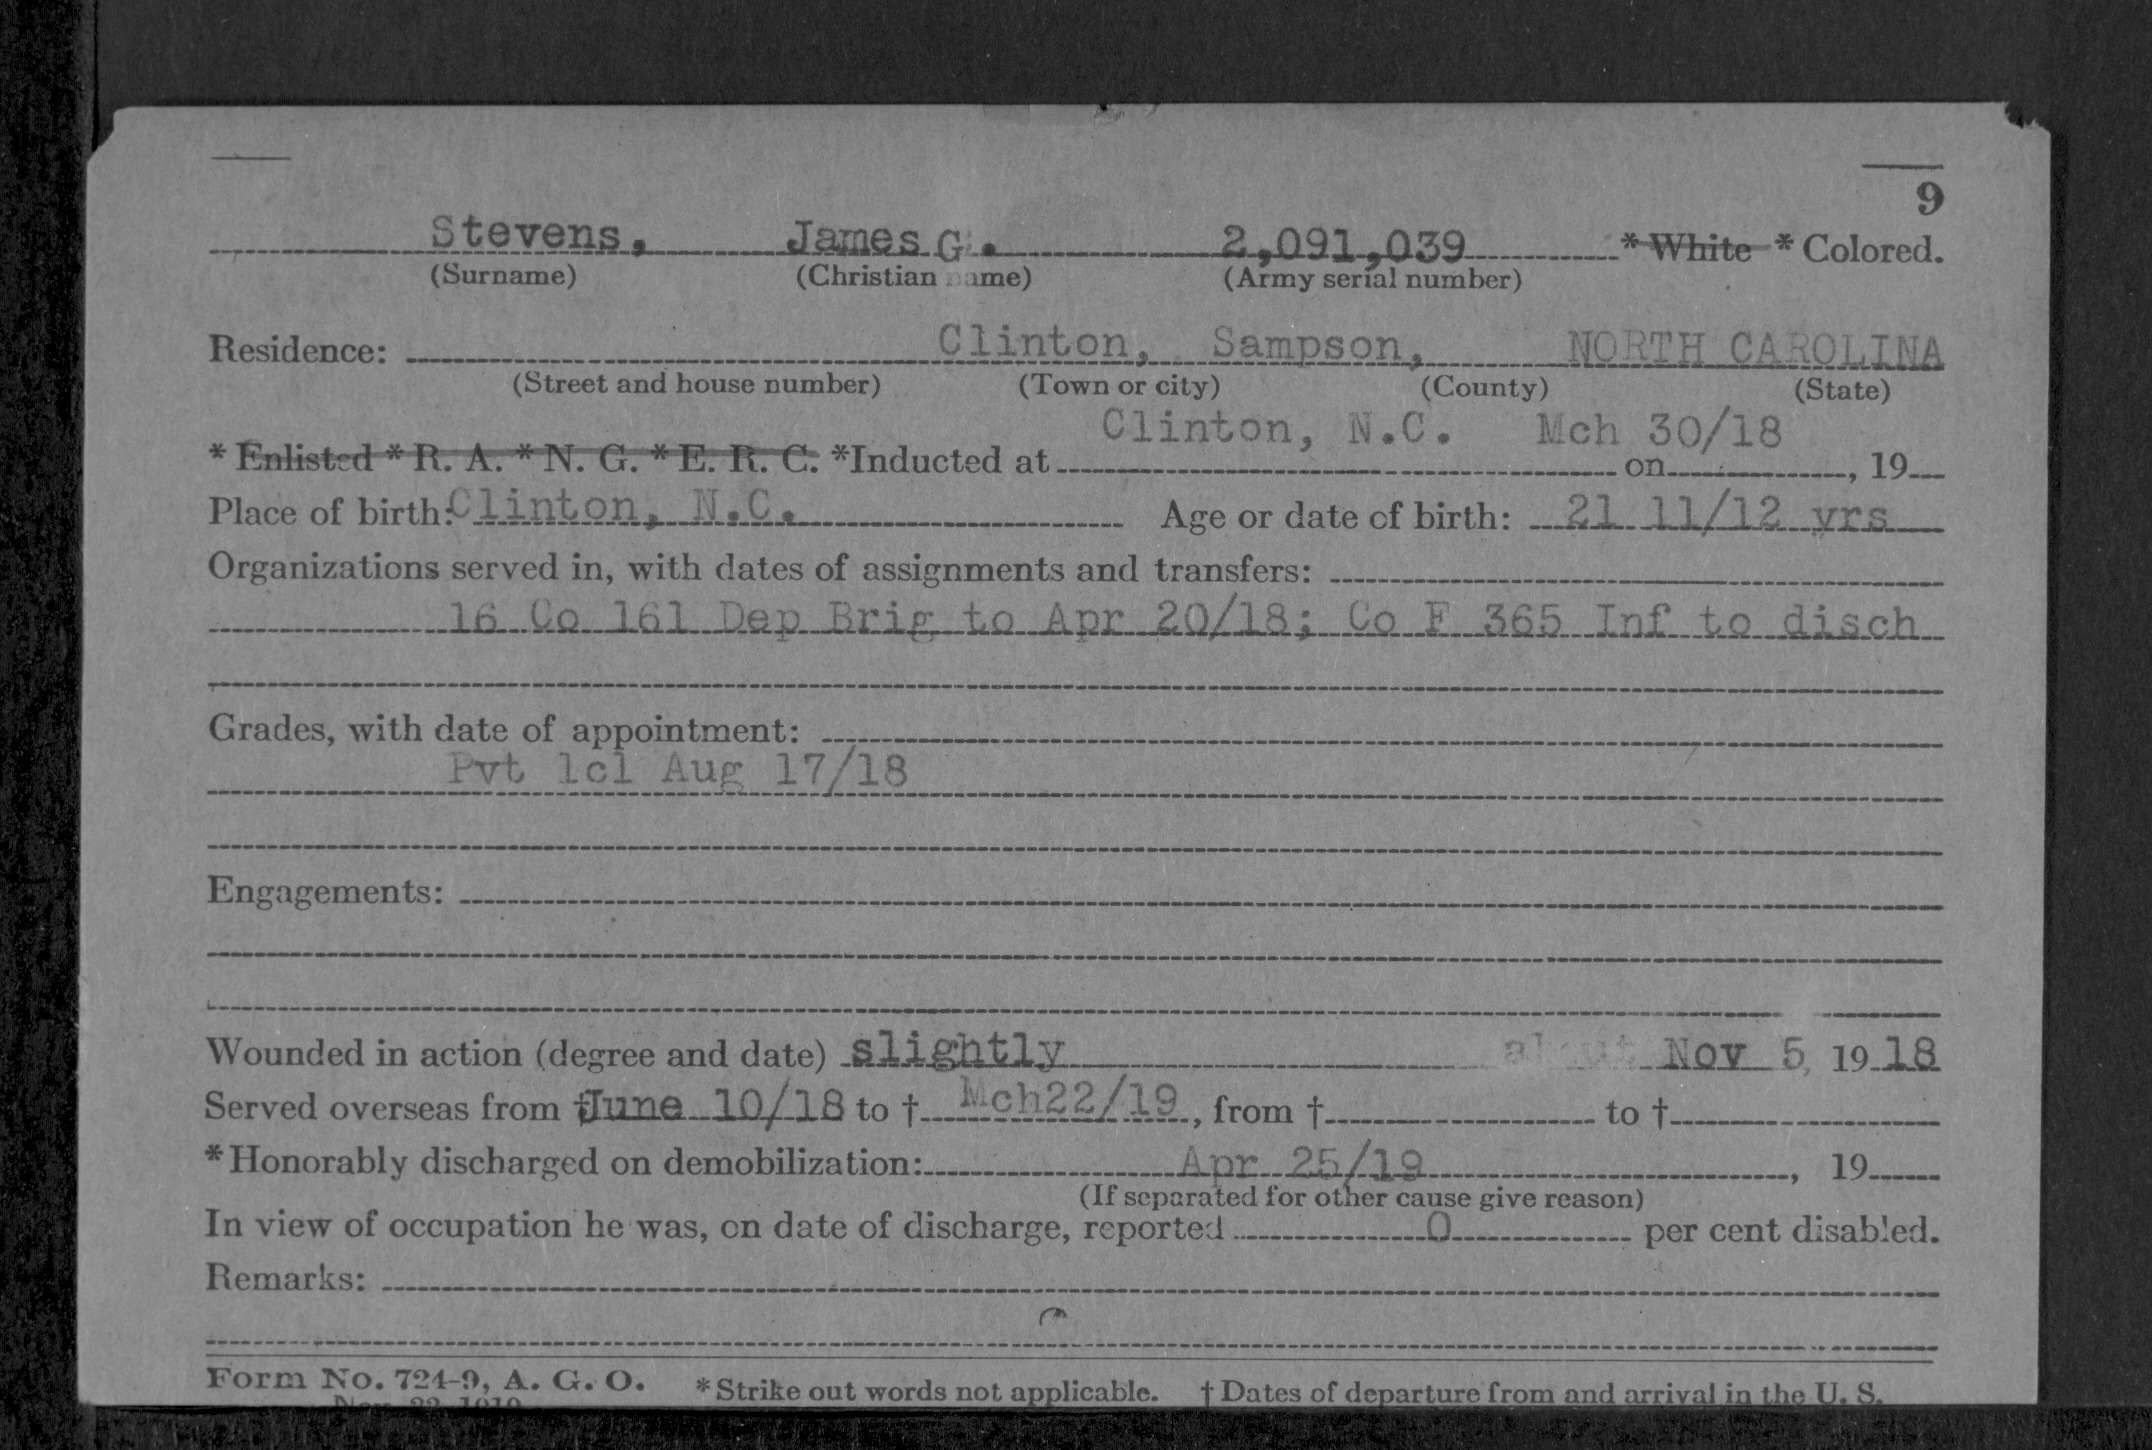 9
Stevens, James G. 2,091,039 * White * Colored.
(Surname) (Christian name) (Army serial number)
Residence: Clinton, Sampson, NORTH CAROLINA
(Street and house number) (Town or city) (County) (State)
Clinton, N.C. Mch 30/18
* Enlisted * R. A. * N. G. * E. R. C. *Inducted at on , 19
Place of birth: Clinton, N.C. Age or date of birth: 21 11/12 yrs
Organizations served in, with dates of assignments and transfers:
16 Co 161 Dep Brig to Apr 20/18; Co F 365 Inf to disch
Grades, with date of appointment:
Pvt 1cl Aug 17/18
Engagements:
Wounded in action (degree and date) slightly about Nov 5, 19 18
Served overseas from † June 10/18 to † Mch22/19, from † to †
* Honorably discharged on demobilization: Apr 25/19 , 19
(If separated for other cause give reason)
In view of occupation he was, on date of discharge, reported 0 per cent disabled.
Remarks:
Form No. 724-9, A. G. O. * Strike out words not applicable. † Dates of departure from and arrival in the U. S.
Nov. 22, 1919